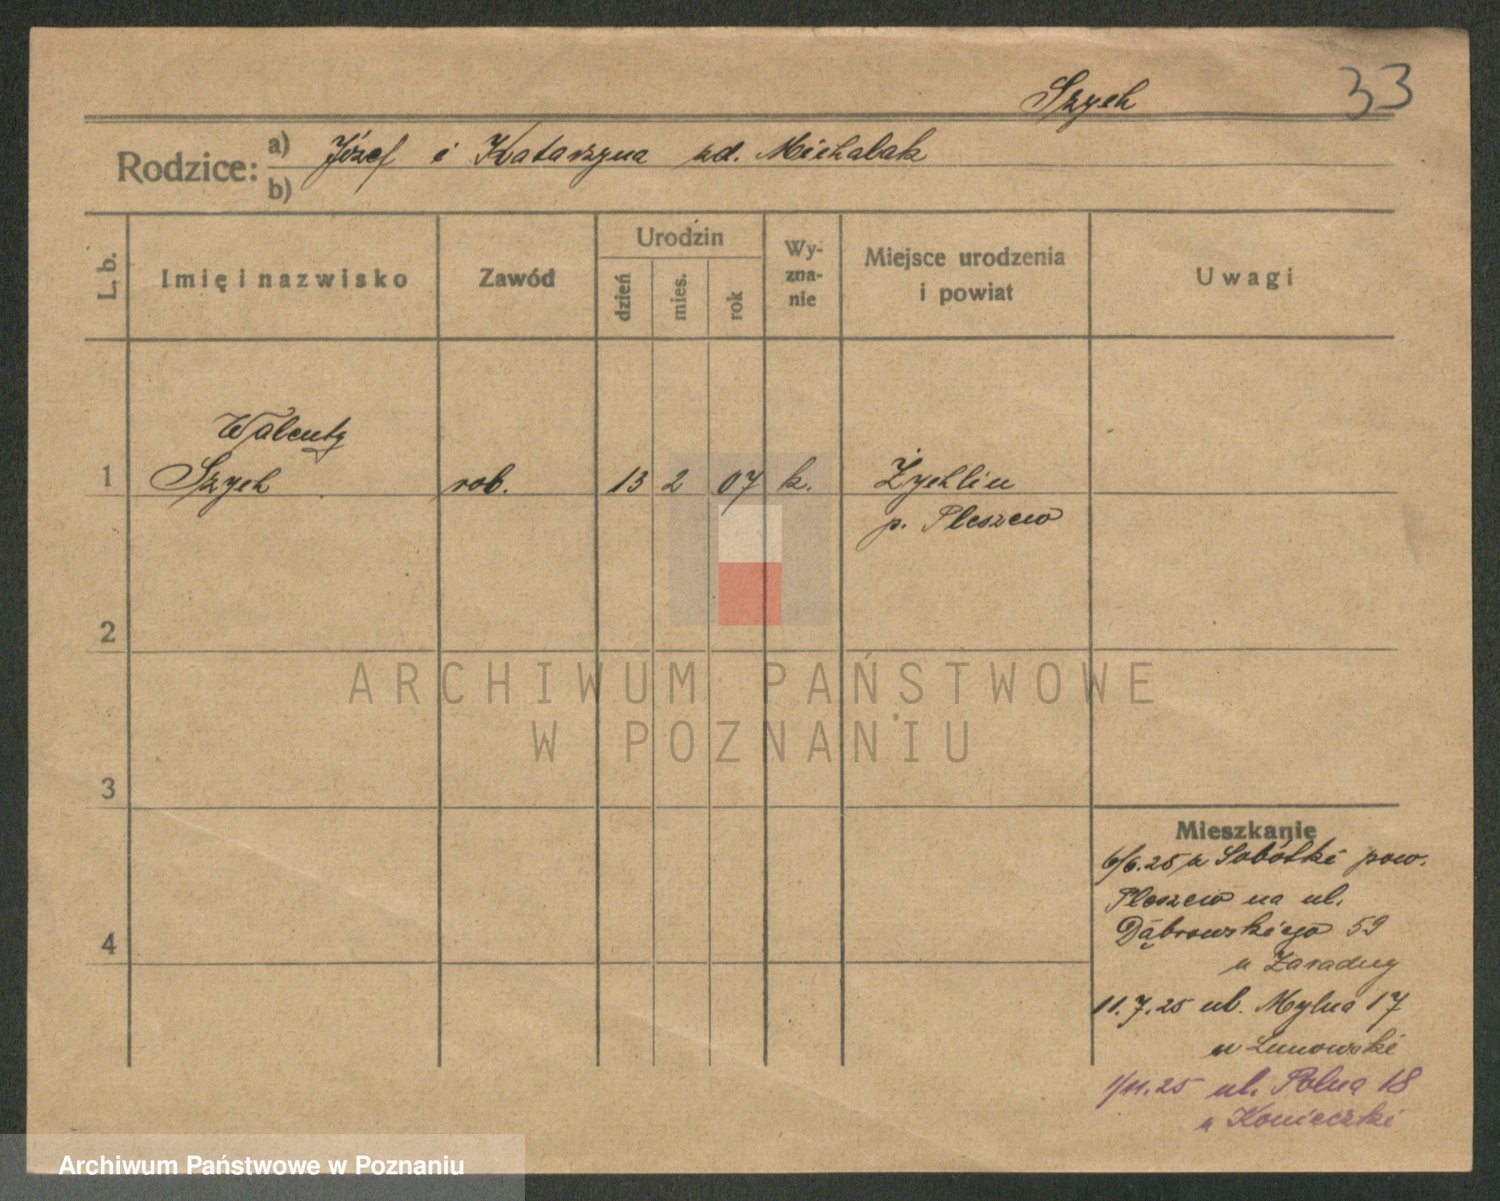 Szych 33
Rodzice: a) Józef i Katarzyna zd. Michalak
b)
L. b. Imię i nazwisko Zawód Urodzin dzień mies. rok Wy-zna-nie Miejsce urodzenia i powiat Uwagi
Walenty
1 Szych rob. 13 2 07 k. Żychlin
p. Pleszew
2
ARCHIWUM PAŃSTWOWE
W POZNANIU
3
Mieszkanie
6/6.25 z Sobótki pow.
Pleszew na ul.
4 Dąbrowskiego 59
u Zaradny
11.7.25 ul. Mylna 17
u
1/11.25 ul. Polna 18
u Konieczki
Archiwum Państwowe w Poznaniu